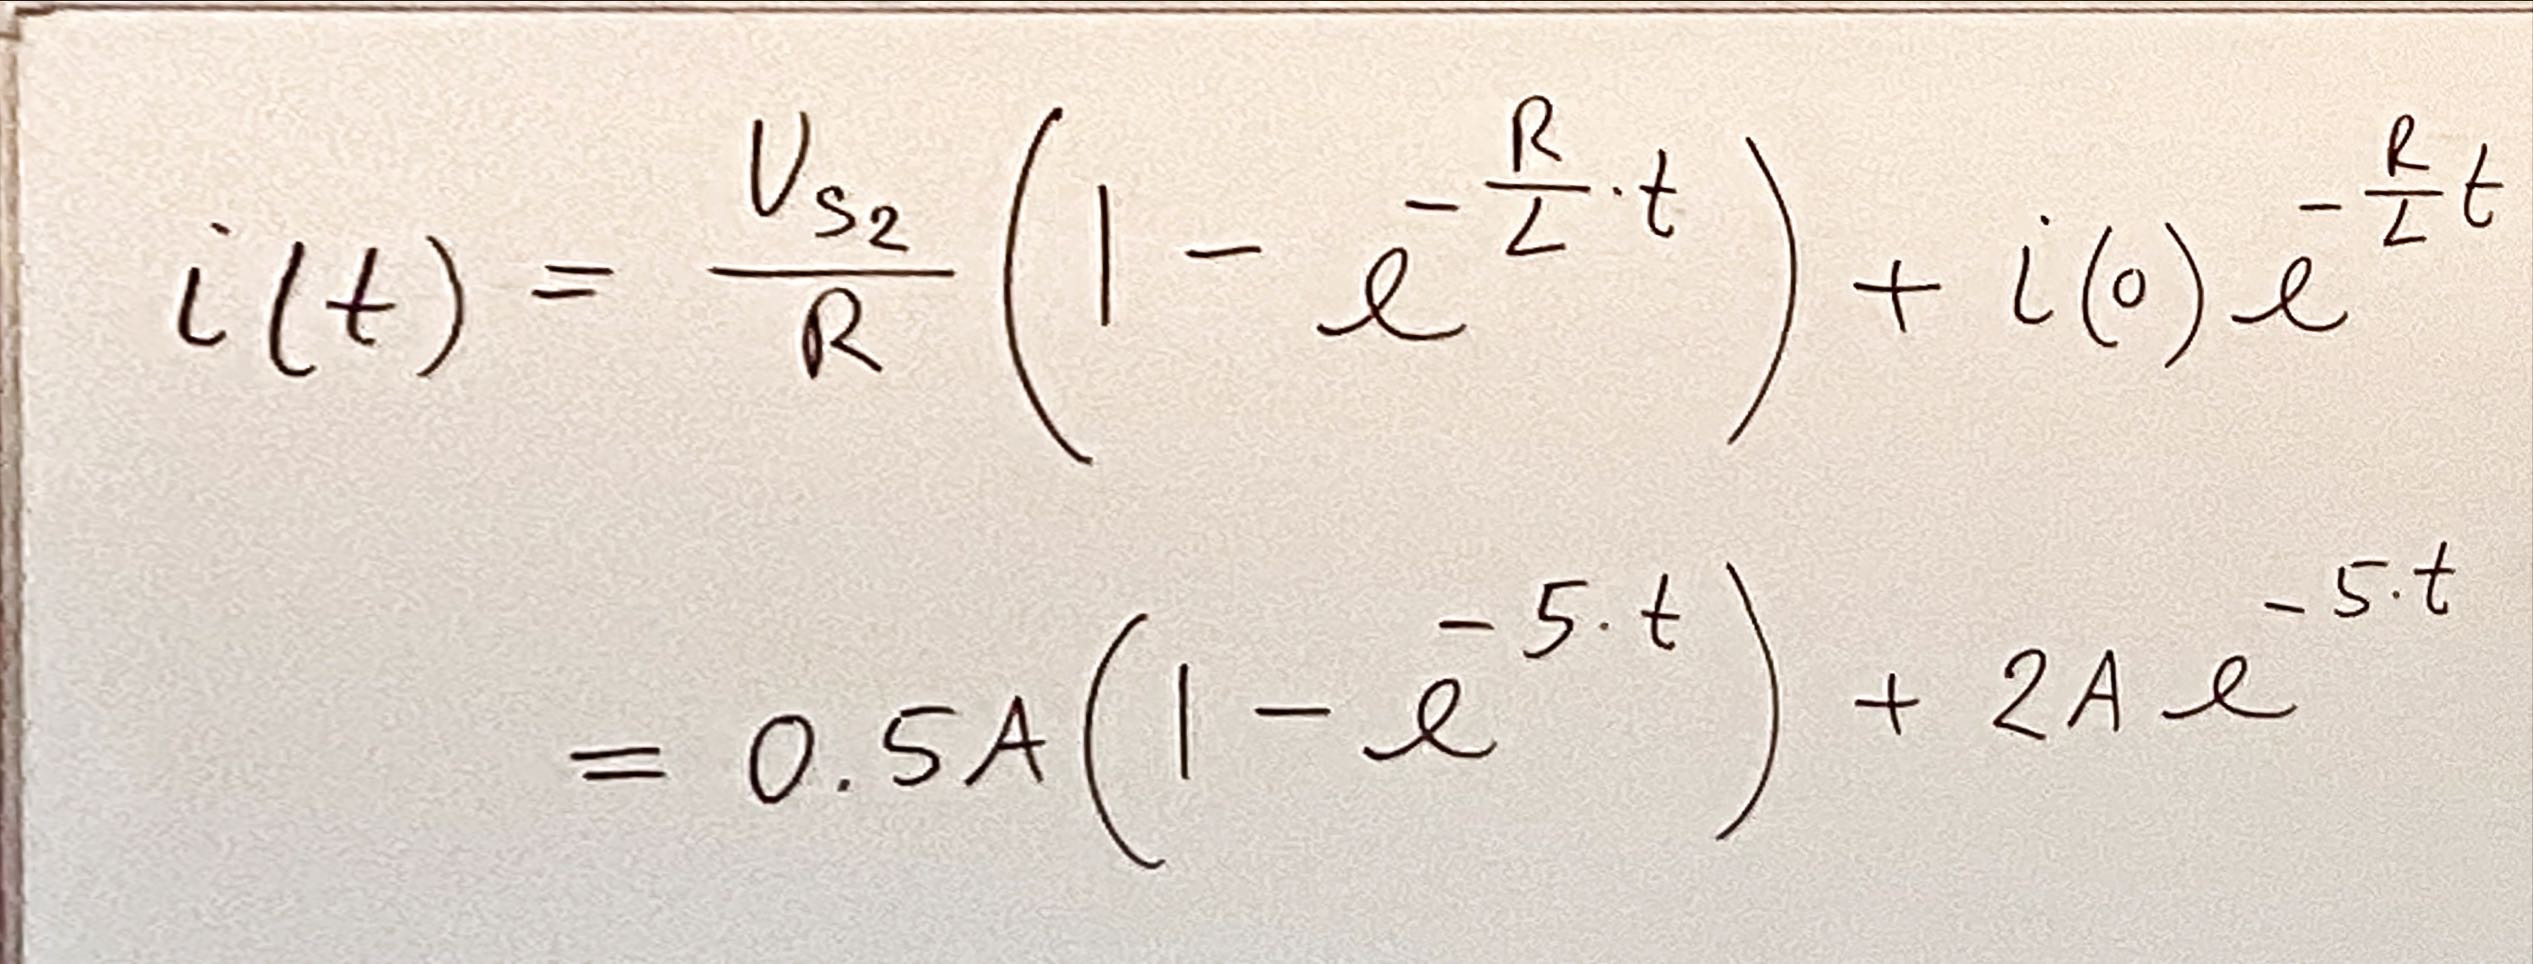 i(t) = \frac{V_{S2}}{R} \left( 1 - e^{-\frac{R}{L} \cdot t} \right) + i(0) e^{-\frac{R}{L} t}
= 0.5A \left( 1 - e^{-5 \cdot t} \right) + 2A e^{-5 \cdot t}